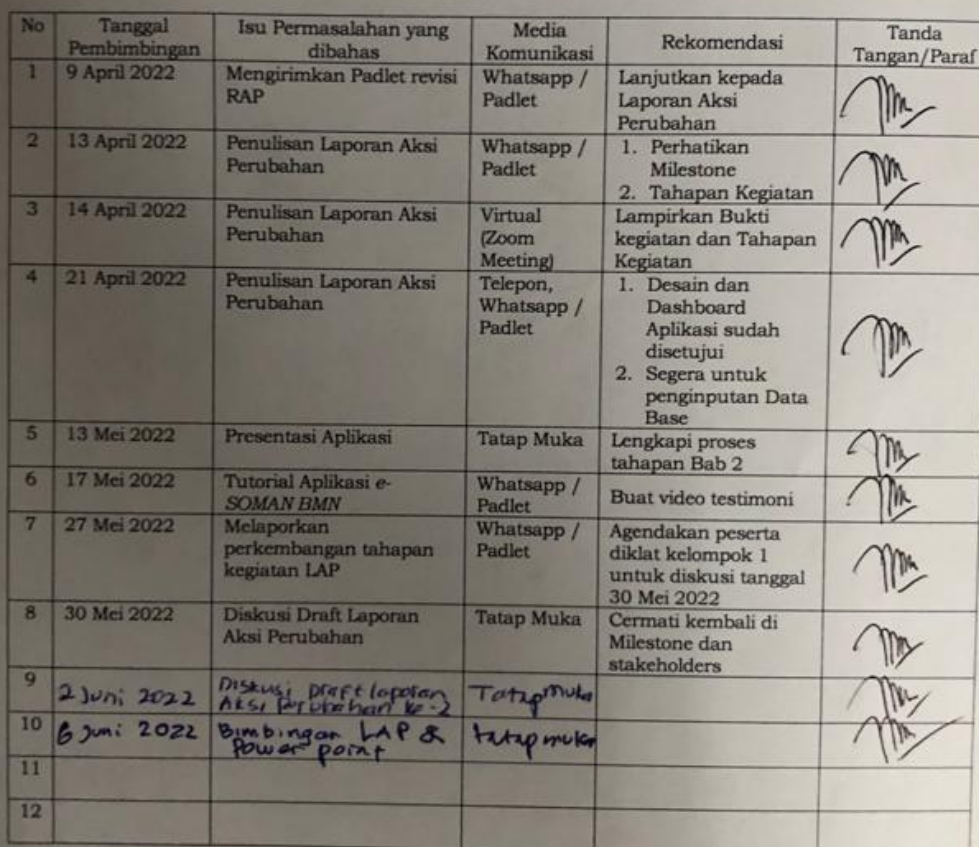 No
Tanggal
Pembimbingan
Isu Permasalahan yang
dibahas
Media
Komunikasi
Rekomendasi
Tanda
Tangan/Paraf
1
9 April 2022
Mengirimkan Padlet revisi
RAP
Whatsapp /
Padlet
Lanjutkan kepada
Laporan Aksi
Perubahan
2
13 April 2022
Penulisan Laporan Aksi
Perubahan
Whatsapp /
Padlet
1. Perhatikan
Milestone
2. Tahapan Kegiatan
3
14 April 2022
Penulisan Laporan Aksi
Perubahan
Virtual
(Zoom
Meeting)
Lampirkan Bukti
kegiatan dan Tahapan
Kegiatan
4
21 April 2022
Penulisan Laporan Aksi
Perubahan
Telepon,
Whatsapp /
Padlet
1. Desain dan
Dashboard
Aplikasi sudah
disetujui
2. Segera untuk
penginputan Data
Base
5
13 Mei 2022
Presentasi Aplikasi
Tatap Muka
Lengkapi proses
tahapan Bab 2
6
17 Mei 2022
Tutorial Aplikasi e-
SOMAN BMN
Whatsapp /
Padlet
Buat video testimoni
7
27 Mei 2022
Melaporkan
perkembangan tahapan
kegiatan LAP
Whatsapp /
Padlet
Agendakan peserta
diklat kelompok 1
untuk diskusi tanggal
30 Mei 2022
8
30 Mei 2022
Diskusi Draft Laporan
Aksi Perubahan
Tatap Muka
Cermati kembali di
Milestone dan
stakeholders
9
2 Juni 2022
Diskusi Draft laporan
Aksi perubahan ke-2
Tatap Muka
10
6 Juni 2022
Bimbingan LAP &
Power point
tatap muka
11
12